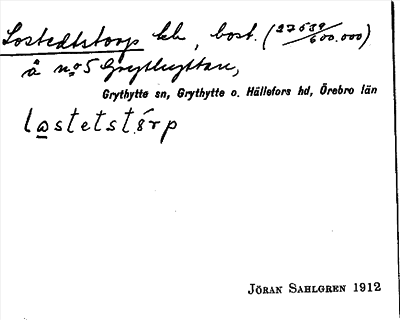 Lostedtstorp lh, bost. (27589/600.000)
å no 5 Grythyttan,
Grythytte sn, Grythytte o. Hällefors hd, Örebro län
lastetstårp
JÖRAN SAHLGREN 1912